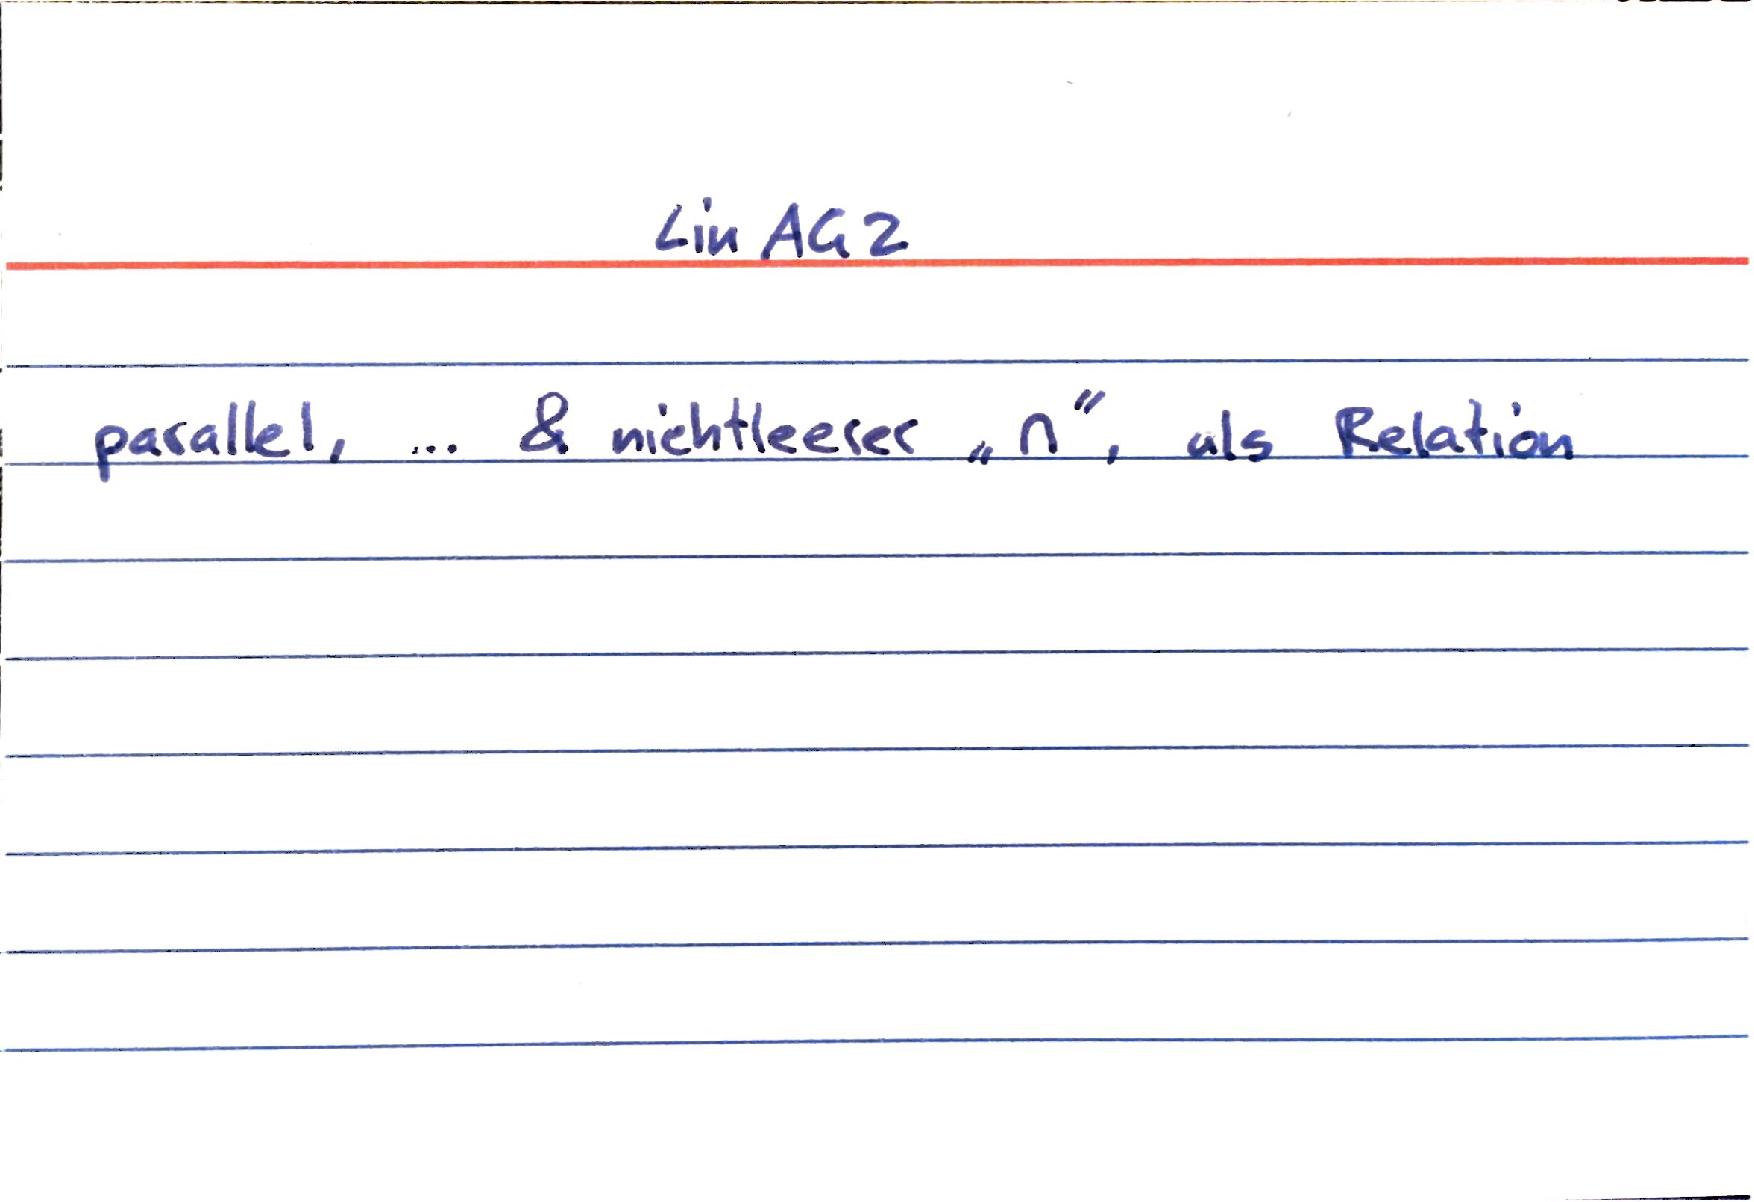 Lin AG 2
parallel, ... & nichtleerer „∩“, als Relation